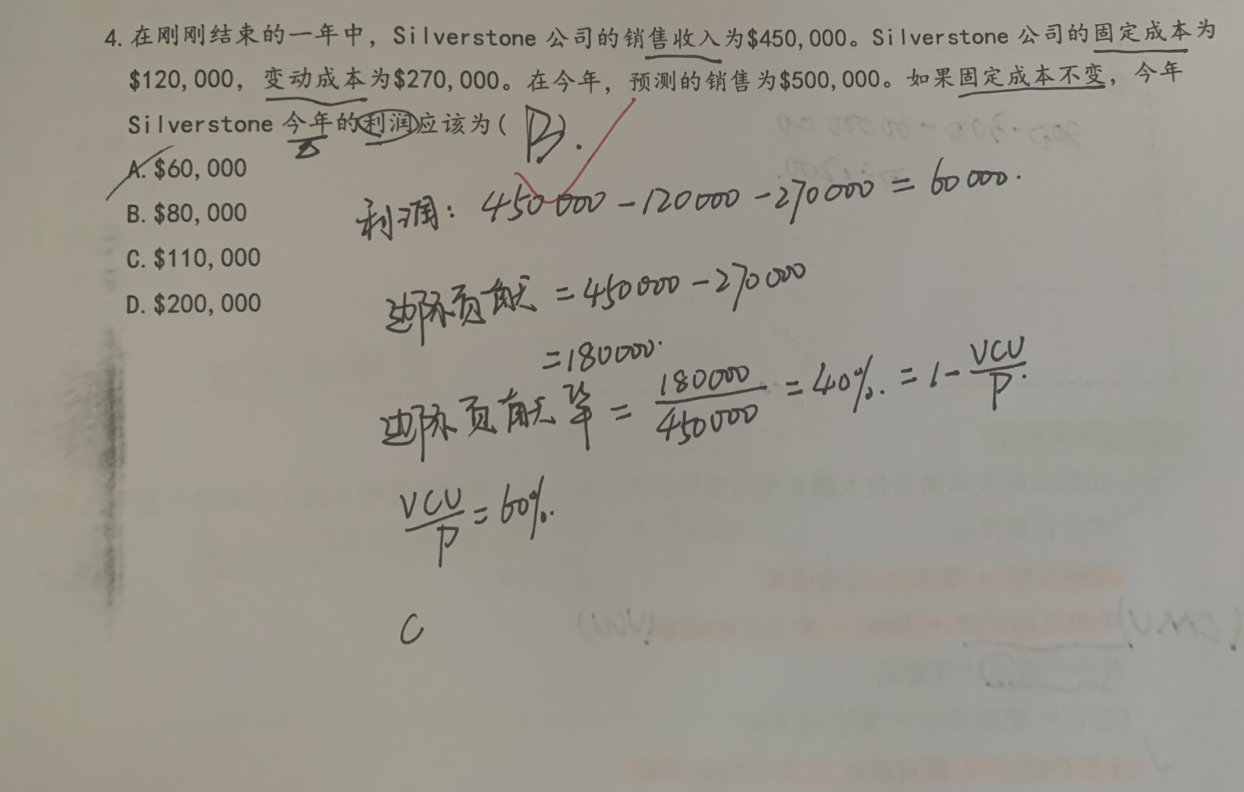 4. 在刚刚结束的一年中，Silverstone 公司的销售收入为$450,000。Silverstone 公司的固定成本为
$120,000，变动成本为$270,000。在今年，预测的销售为$500,000。如果固定成本不变，今年
Silverstone 今年的利润应该为( B ).
A. $60,000
B. $80,000
C. $110,000
D. $200,000
利润：450000-120000-270000=60000.
边际贡献=450000-270000
=180000.
边际贡献率=180000/450000=40%.=1-VCU/P.
VCU/P=60%.
C